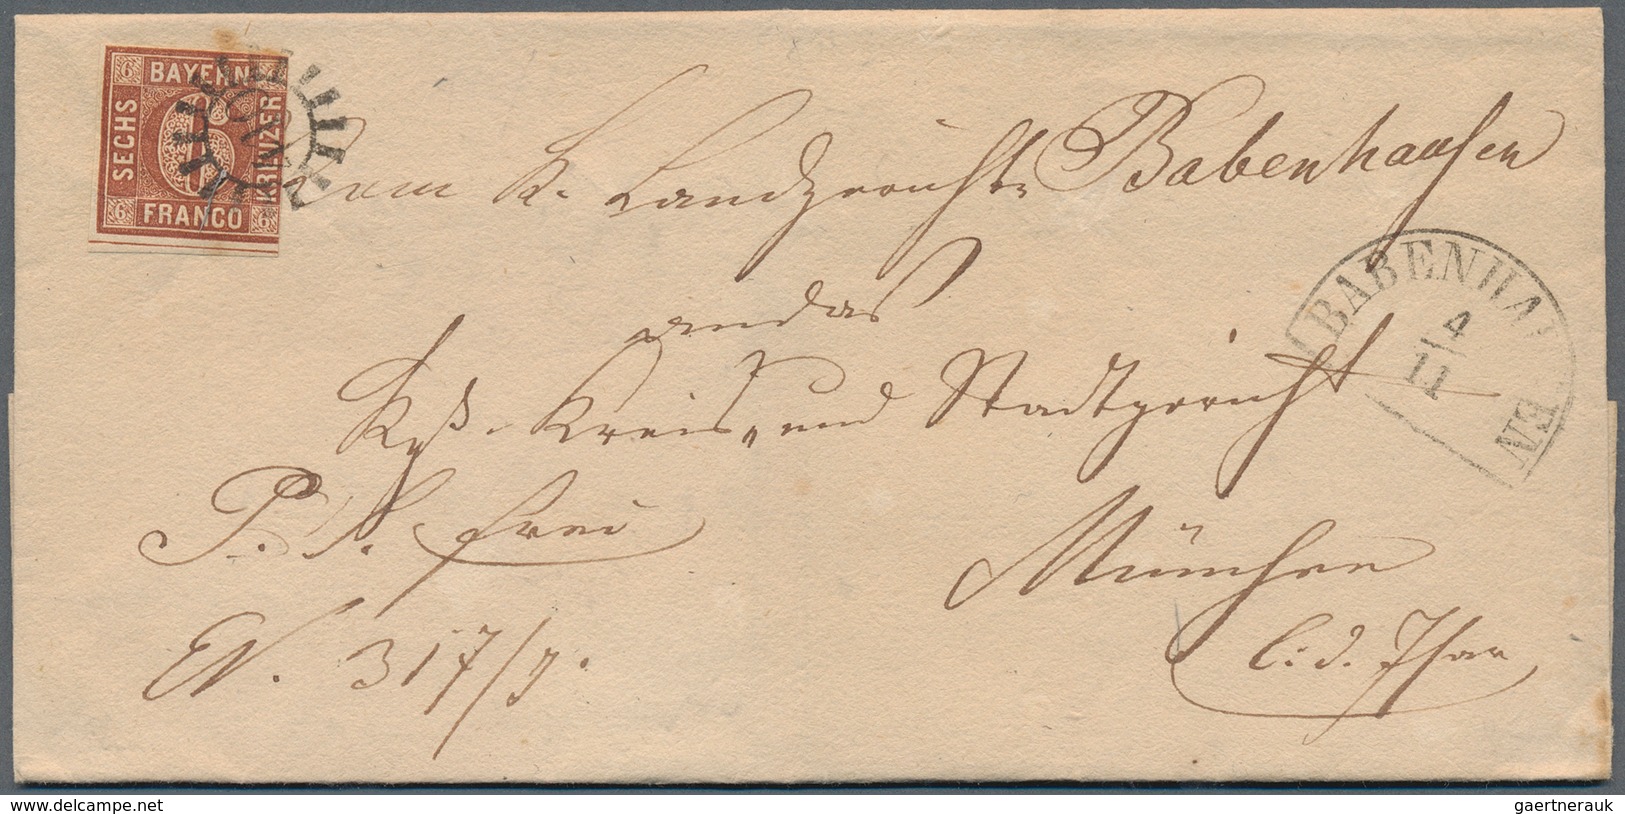 6 BAYERN 6
SECHS
6
KREUZER
6 FRANCO 6
Vom K. Landgerichte Babenhausen
an das
BABENHAUSEN
4
11
Kgl. Kreis- und Stadtgericht
P. S. frei
München
EN. 317/
l. d. Isar
delcampe.net
gaertnerauk